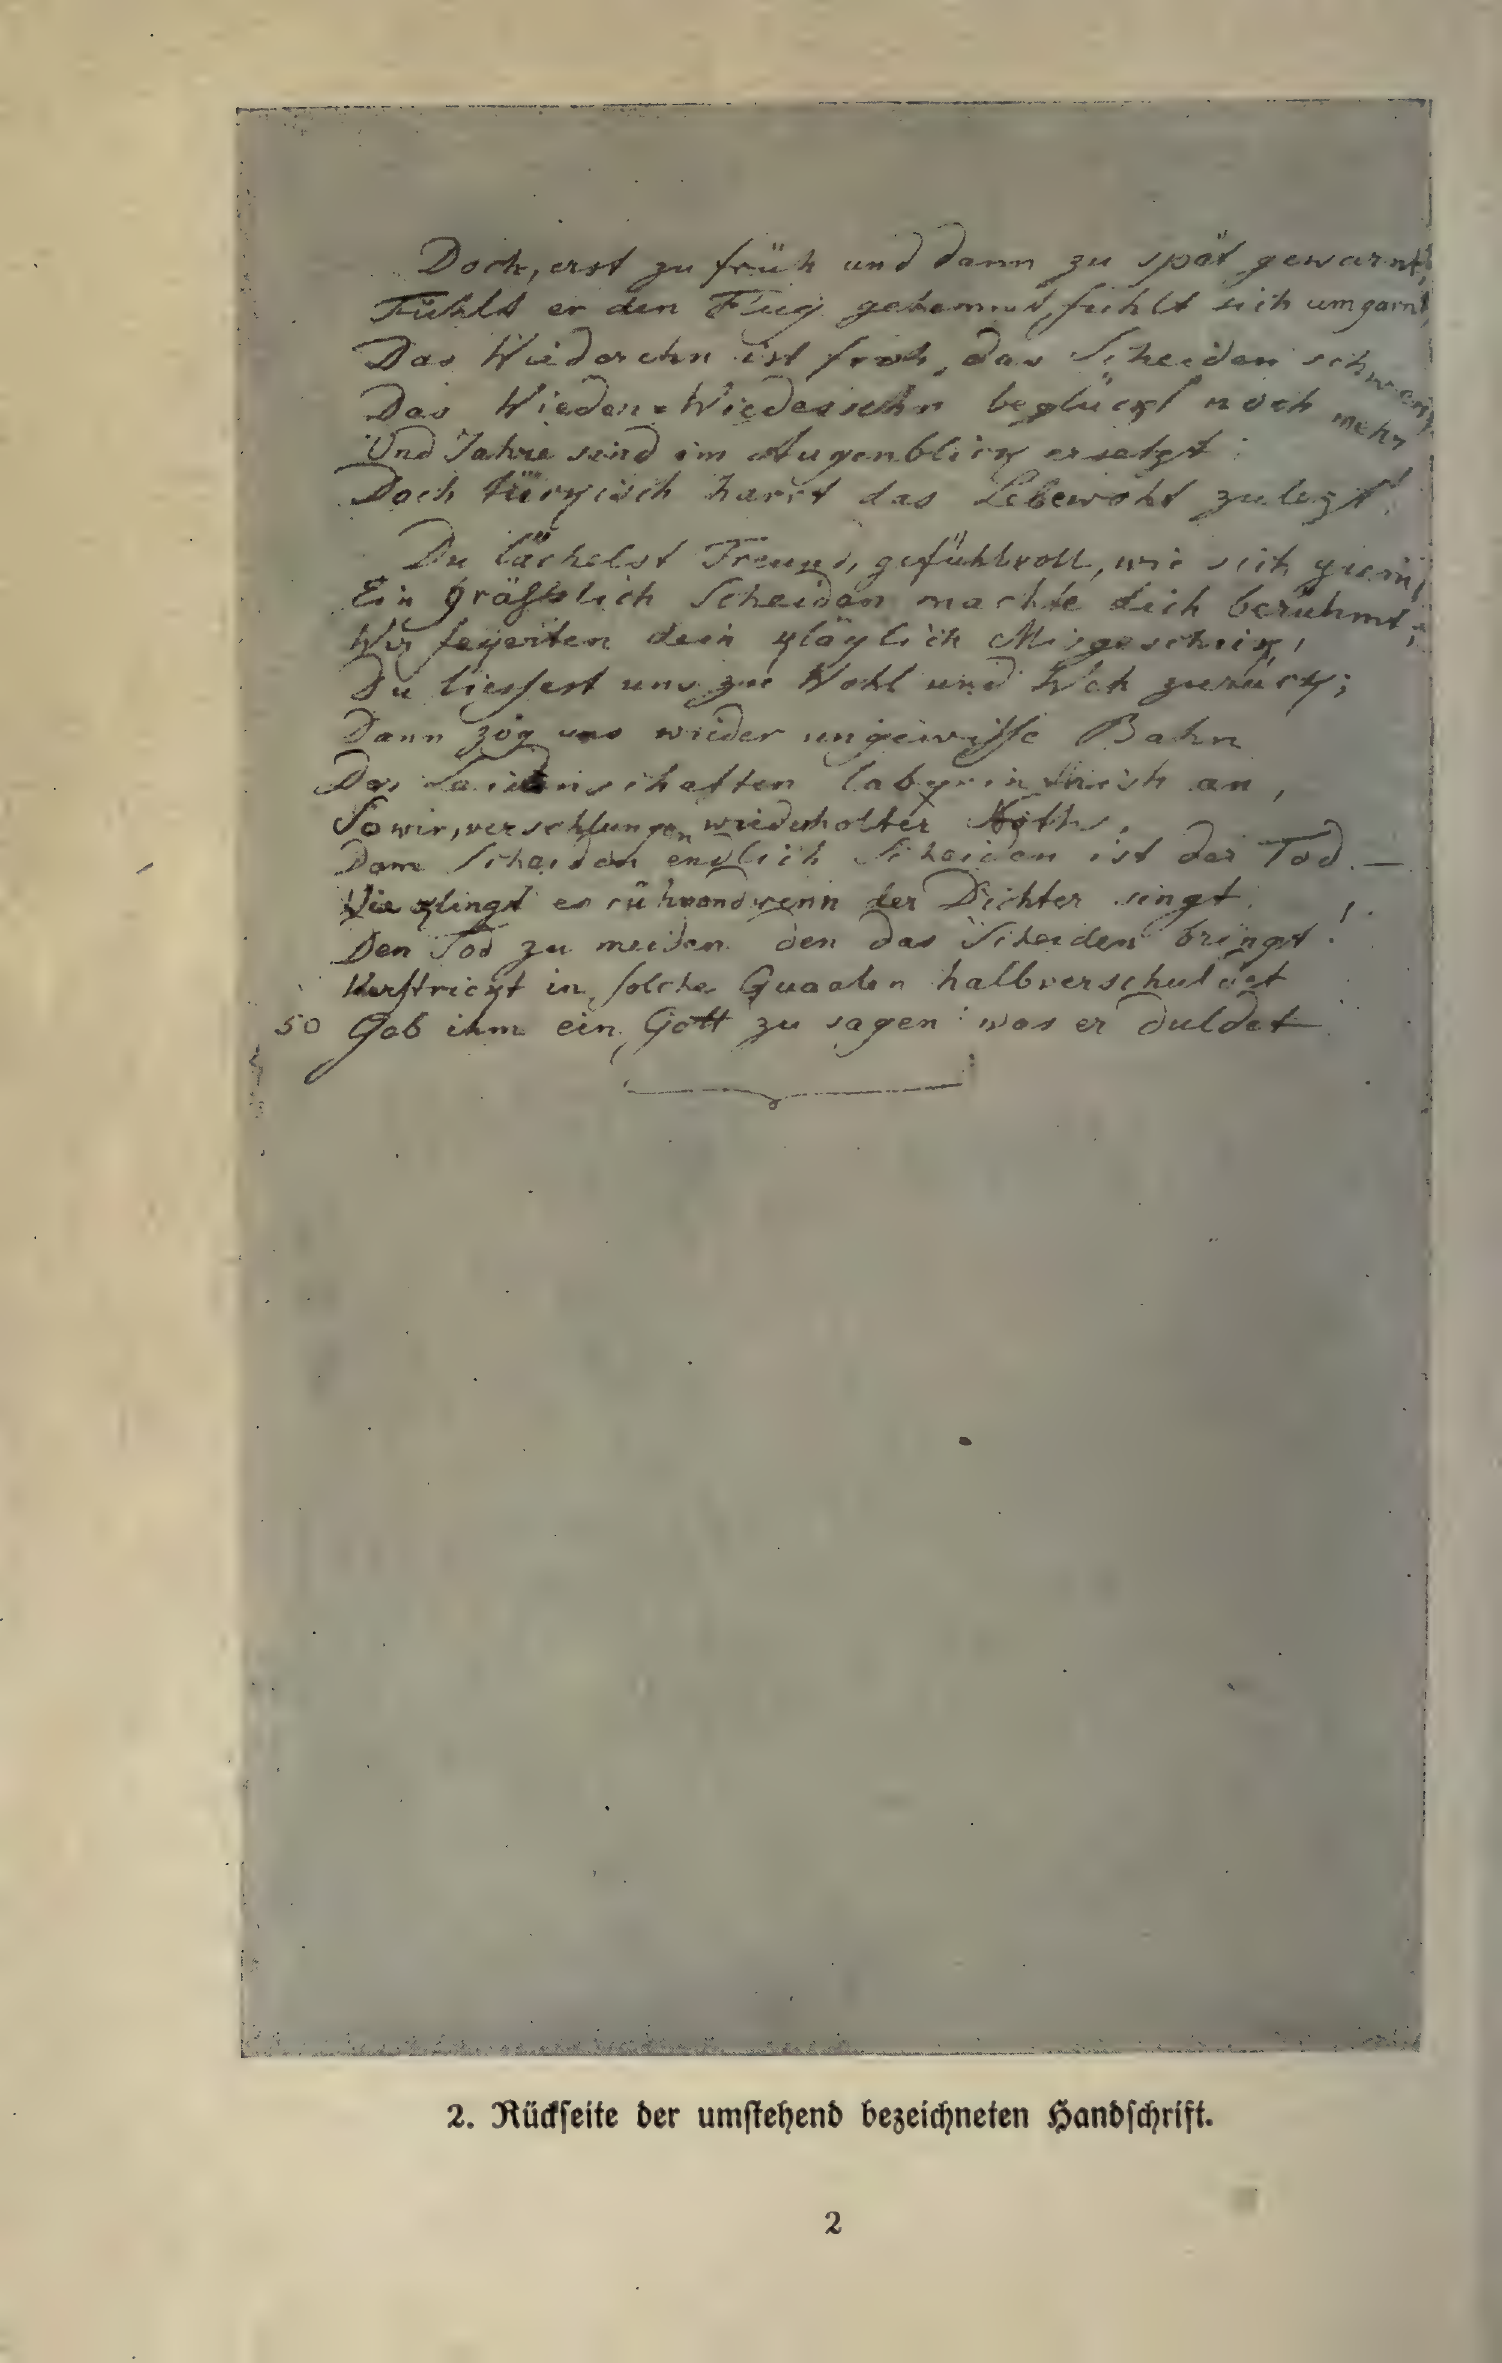 Doch, erst zu früh und dann zu spät gewarnt,
Fühlt er den Flug gehemmt, fühlt sich umgarnt,
Das Wiedersehn ist froh, das Scheiden schwer,
Das Wieder-Wiedersehn beglückt noch mehr
Und Jahre sind im Augenblick ersetzt:
Doch tückisch harrt das Lebewohl zuletzt.
Du lächelst Freund, gefühlvoll, wie sich
Ein gräßslich Scheiden machte dich berühmt;
Wir feyerten dein kläglich Misgeschick,
Du liessest uns zu Wohl und Weh zurück;
Dann zog uns wieder ungewisse Bahn
Der Leidenschaften labyrinthisch an,
So wir, verschlungen wiederholter Noth,
Dem Scheiden endlich Scheiden ist der Tod. —
Wie klingt es rührend wenn der Dichter singt
Den Tod zu meiden den das Scheiden bringt!
Verstrickt in solche Quaalen halbverschuldet
50 Gab ihm ein Gott zu sagen was er duldet
2. Rückseite der umstehend bezeichneten Handschrift.
2